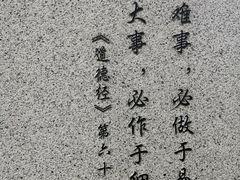 难事，必做于易
大事，必作于细
《道德经》第六十